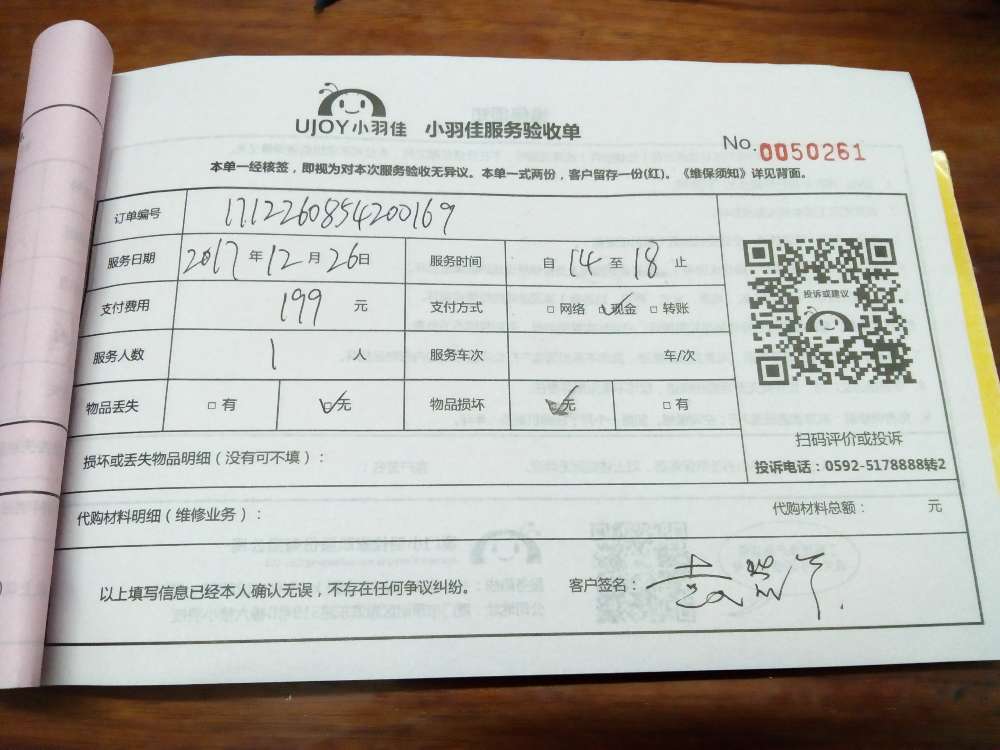 UJOY小羽佳 小羽佳服务验收单
No.0050261
本单一经核签，即视为对本次服务验收无异议。本单一式两份，客户留存一份(红)。《维保须知》详见背面。
订单编号 171226085420169
服务日期 2017年12月26日 服务时间 自14至18止
支付费用 199 元 支付方式 □网络 ☑现金 □转账
服务人数 1 人 服务车次 车/次
物品丢失 □有 ☑无 物品损坏 ☑无 □有
投诉或建议
扫码评价或投诉
投诉电话：0592-5178888转2
损坏或丢失物品明细（没有可不填）：
代购材料明细（维修业务）： 代购材料总额： 元
以上填写信息已经本人确认无误，不存在任何争议纠纷。 客户签名：